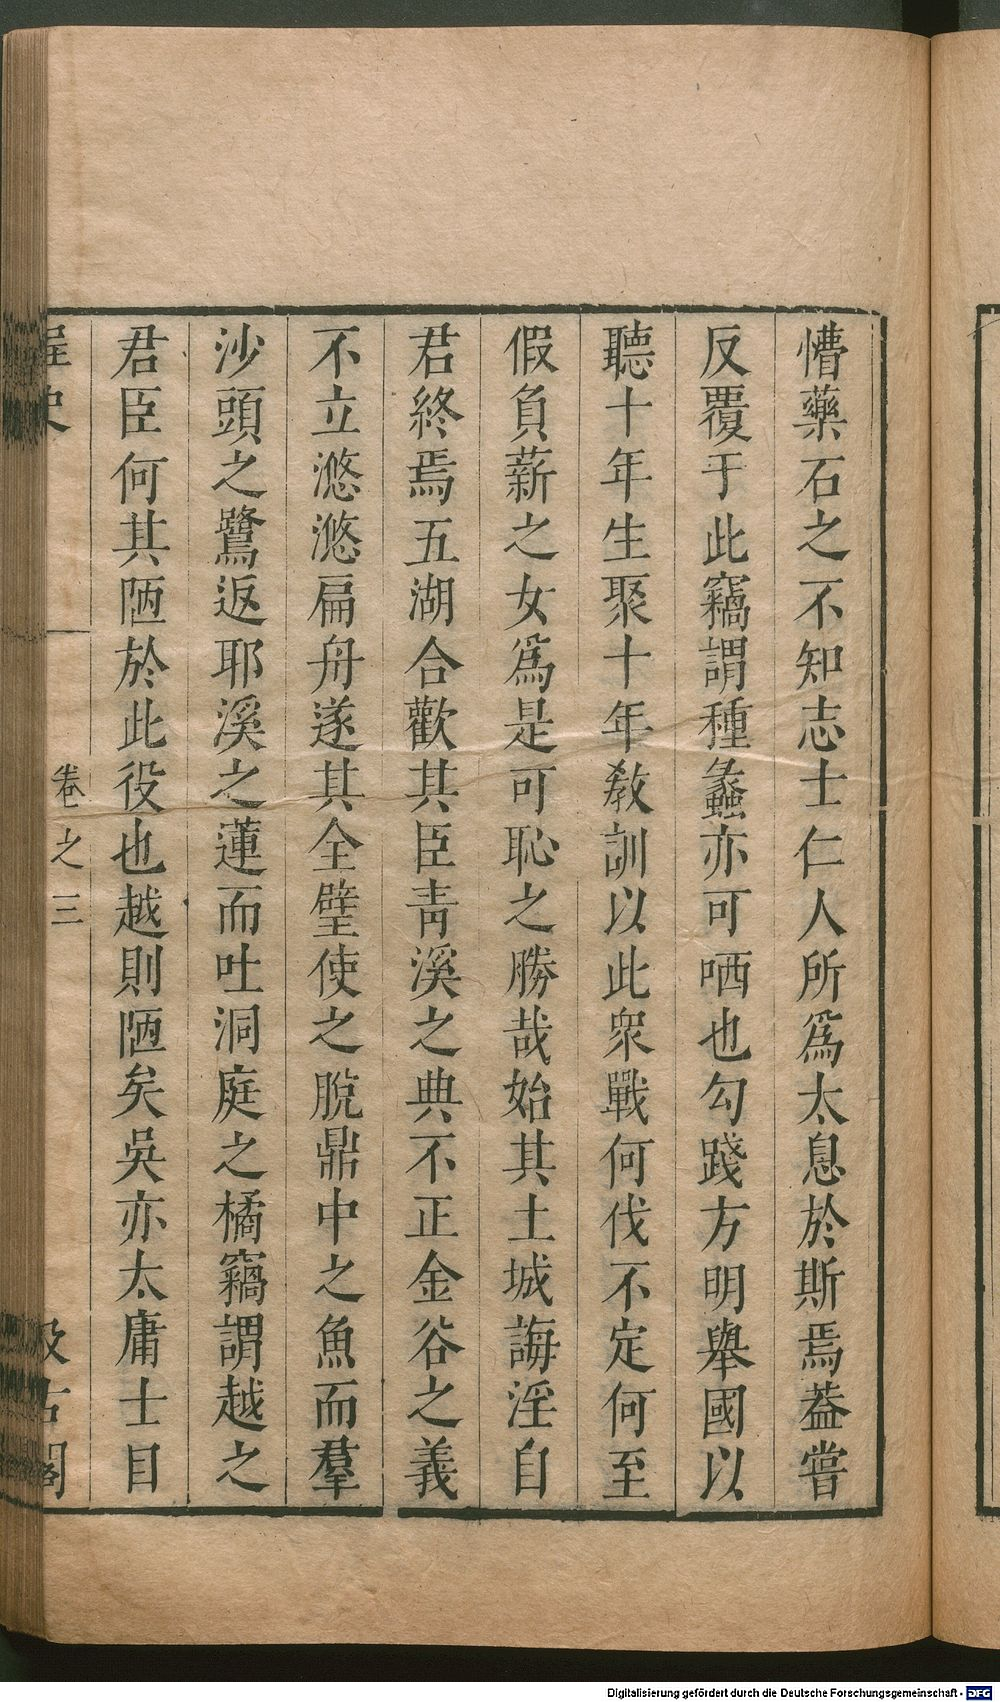 懵藥石之不知志士仁人所爲太息於斯焉蓋嘗
反覆于此竊謂種蠡亦可哂也勾踐方明舉國以
聽十年生聚十年教訓以此衆戰何伐不定何至
假負薪之女爲是可恥之勝哉始其土城誨淫自
君終焉五湖合歡其臣青溪之典不正金谷之義
不立滺滺扁舟遂其全璧使之脫鼎中之魚而羣
沙頭之鷺返耶溪之蓮而吐洞庭之橘竊謂越之
君臣何其陋於此役也越則陋矣吳亦太庸士目
桯史 卷之三 汲古閣
Digitalisierung gefördert durch die Deutsche Forschungsgemeinschaft - DFG